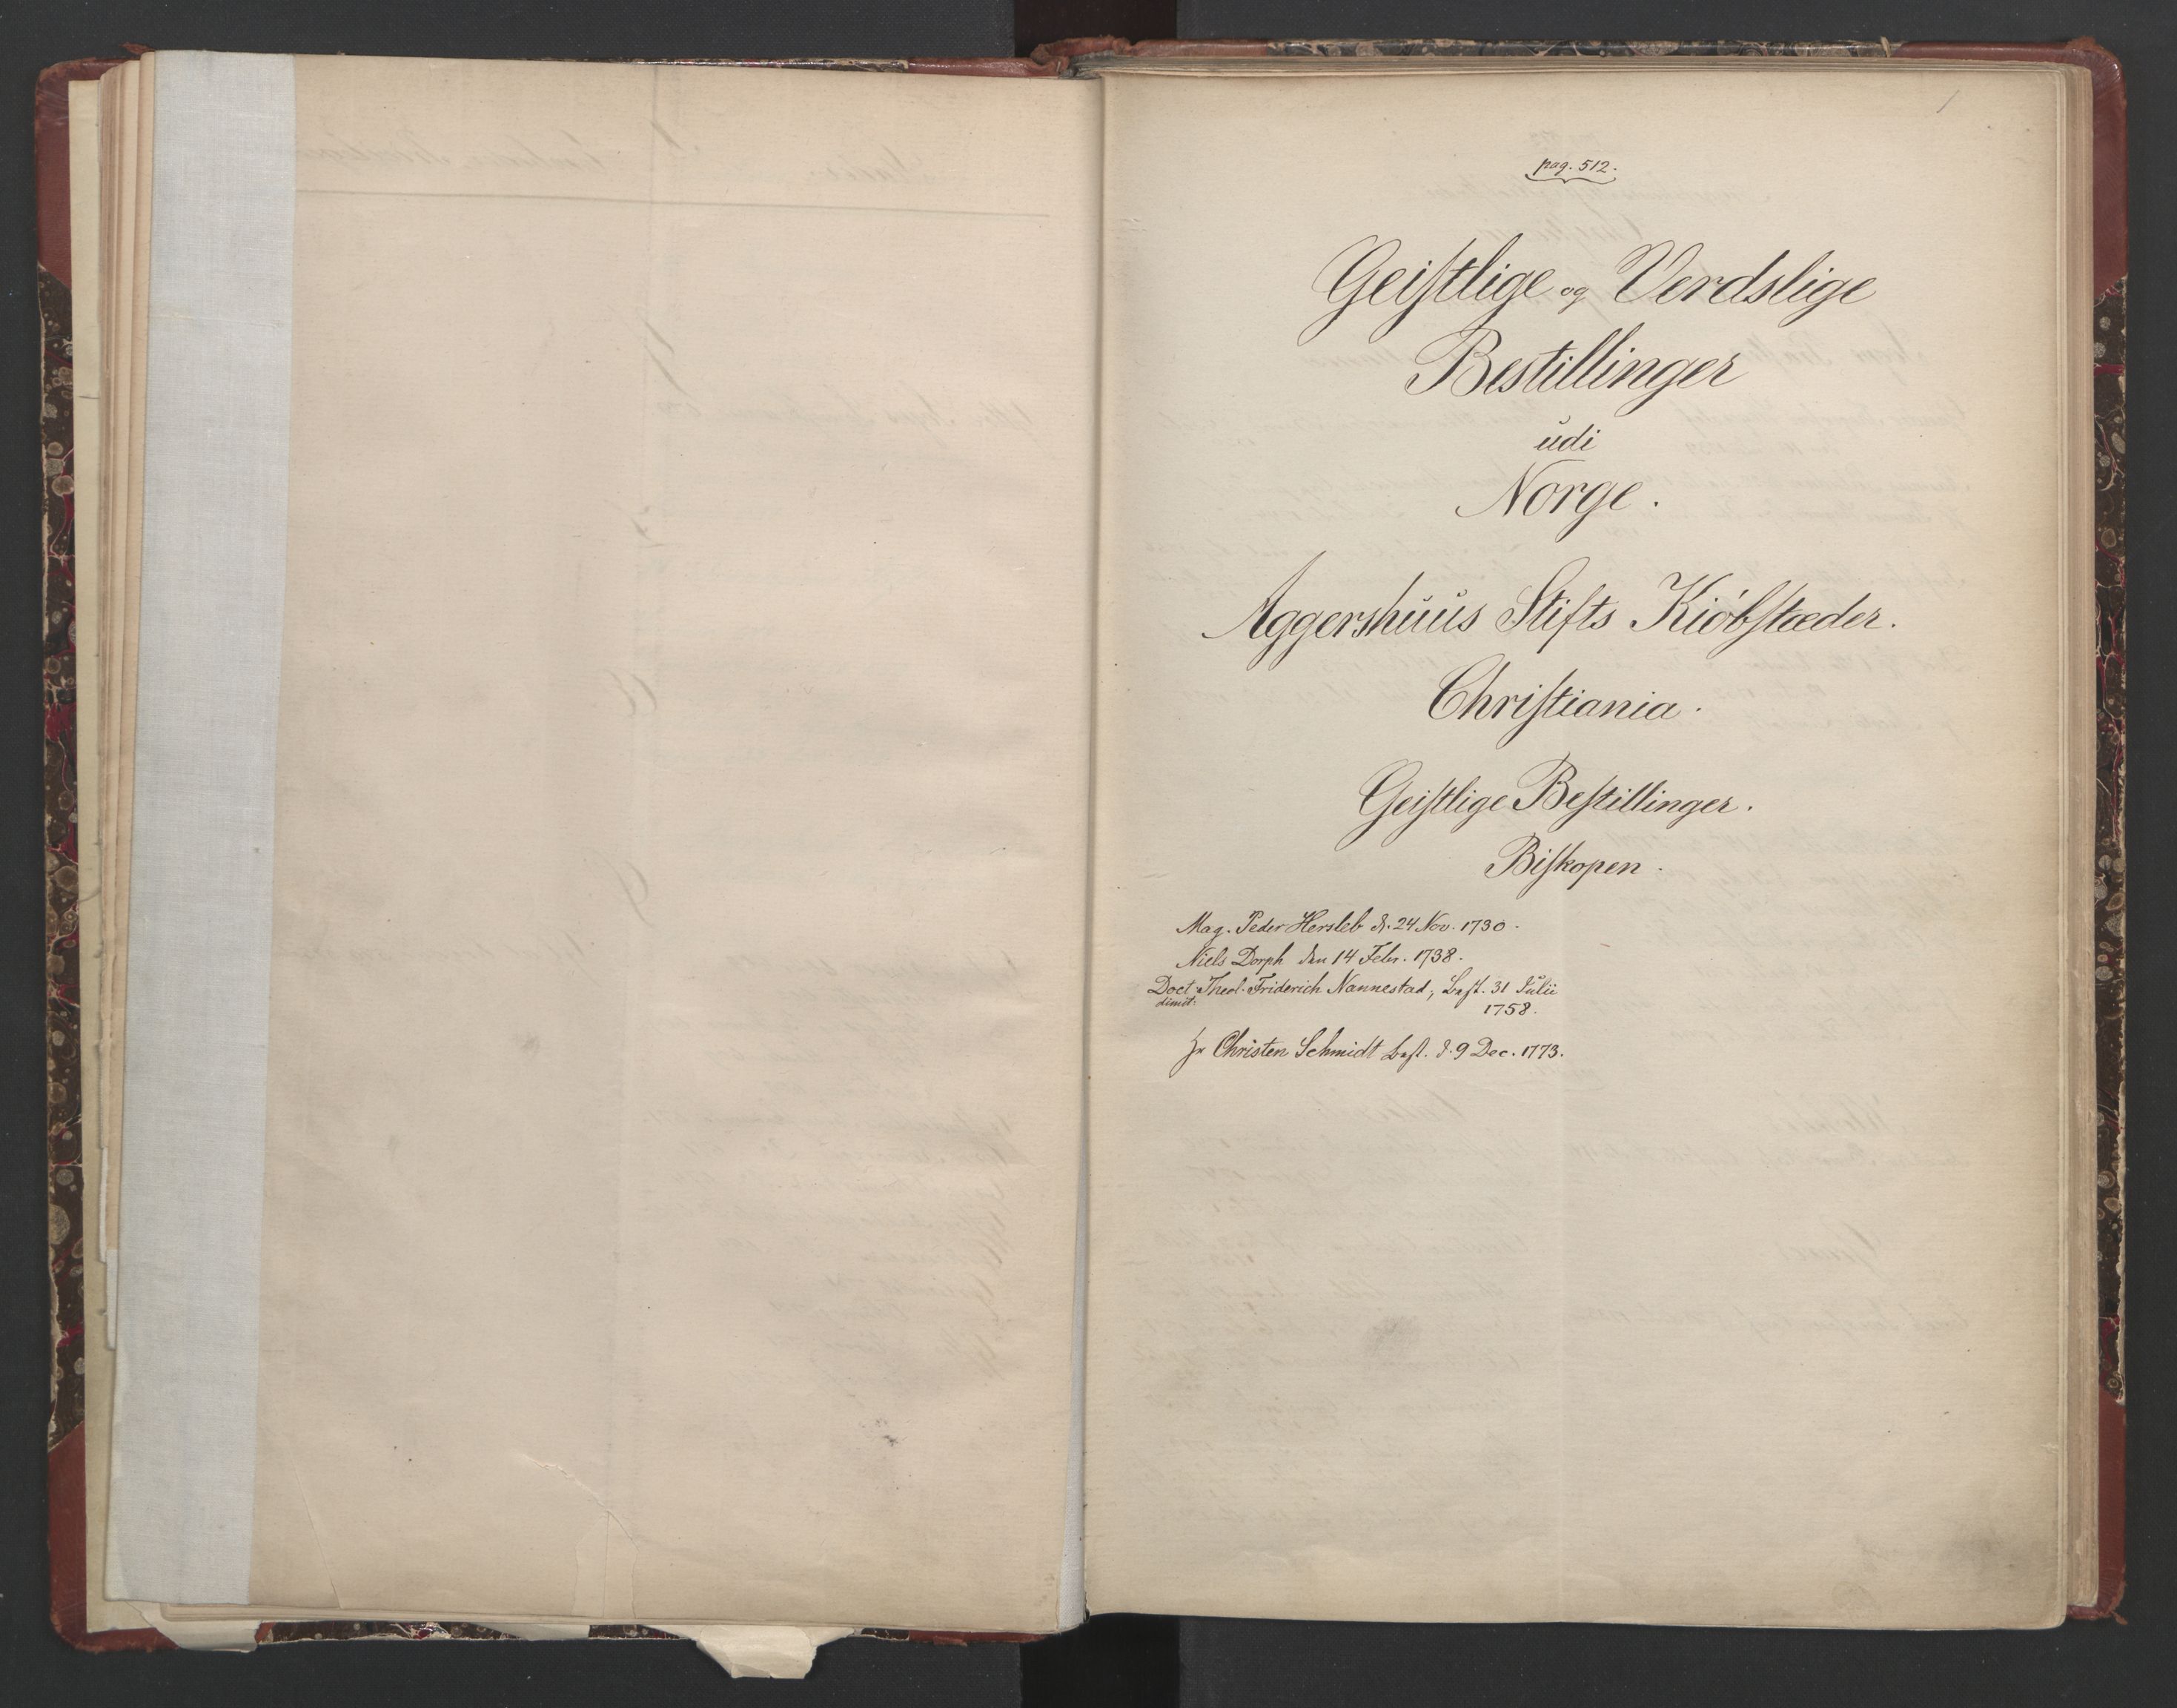 1
pag. 512.
Geistlige og Verdslige
Bestillinger
udi
Norge.
Aggershuus Stifts Kiöbstæder.
Christiania.
Geistlige Bestillinger.
Biskopen.
Mag. Peder Hersleb d. 24 Nov. 1730.
Niels Dorph den 14 Febr. 1738.
Doct. Theol. Friderich Nannestad, Best. 31 Julii
dimit: 1758.
Hr Christen Schmidt best. d. 9 Dec. 1773.